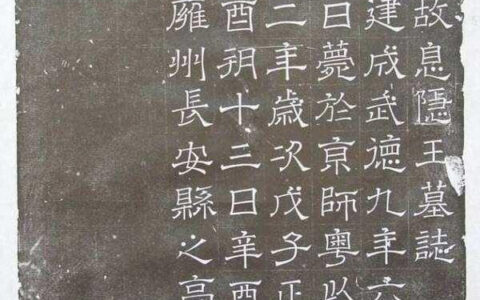 故息隱王墓誌
建成武德九年六
日薨於京師粵以
二年歲次戊子正
酉朔十三日辛酉
廱州長安縣之高